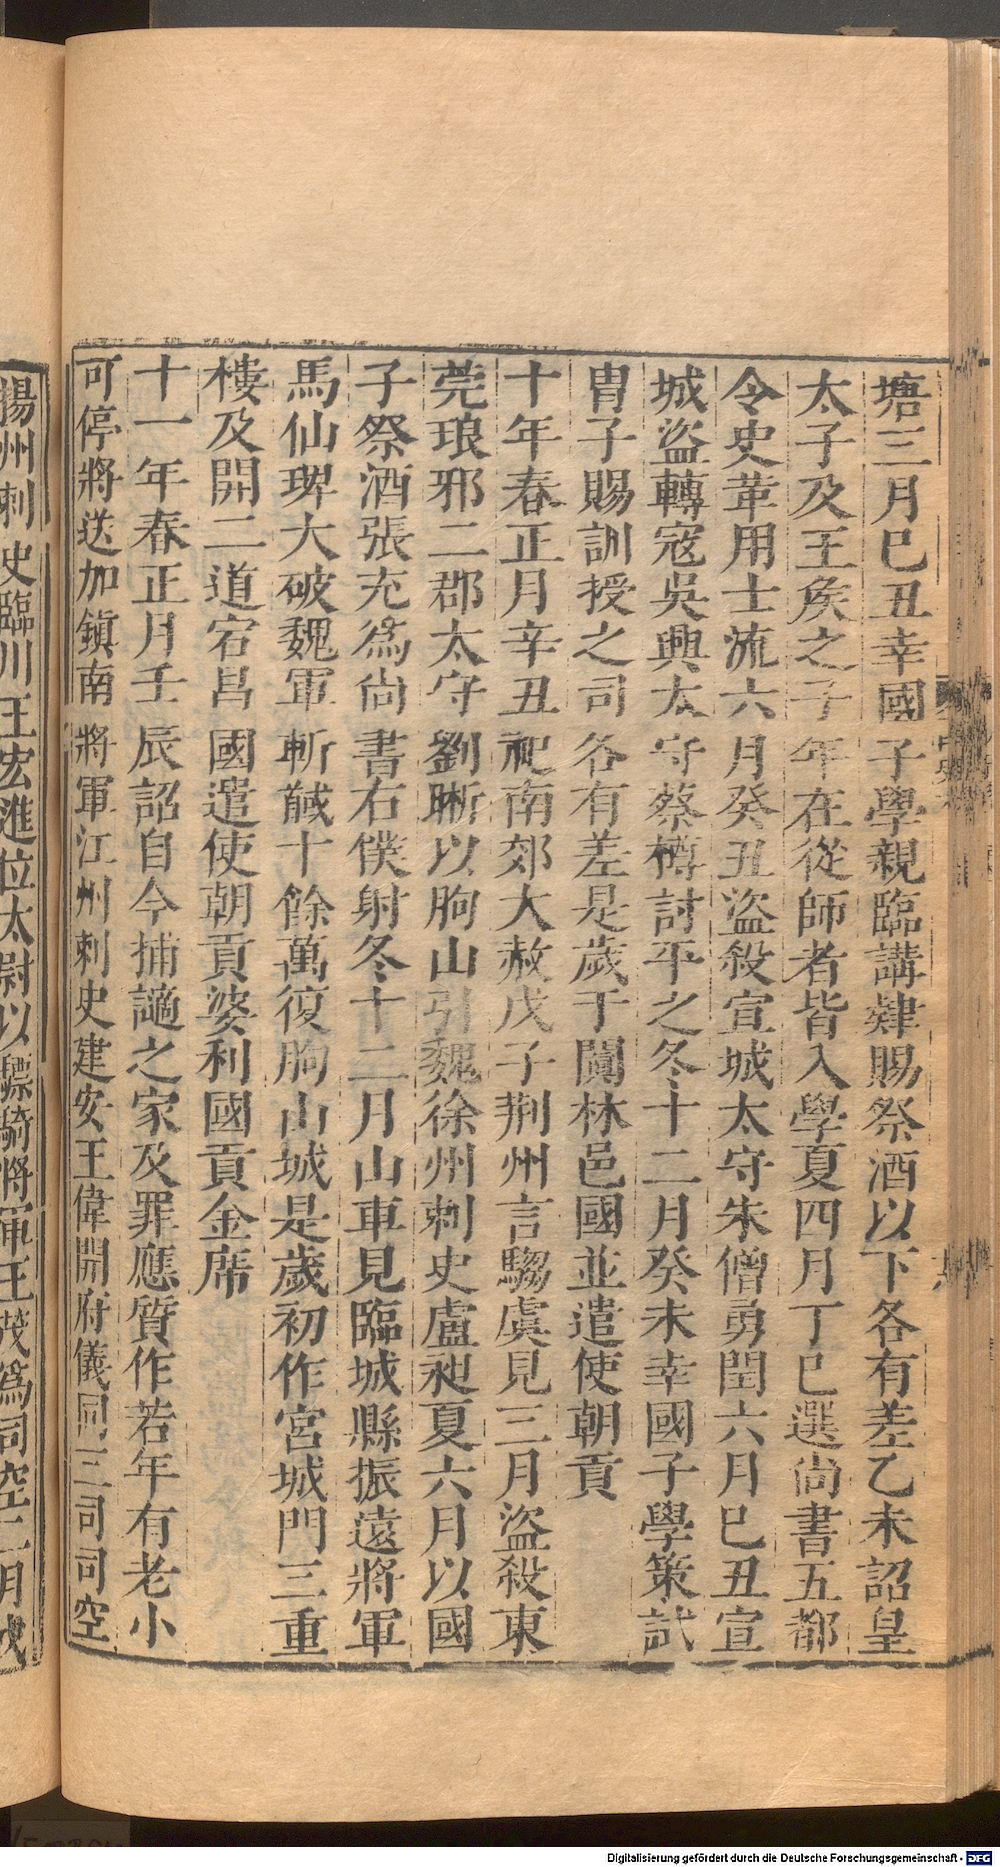 塘三月巳丑幸國子學親臨講肄賜祭酒以下各有差乙未詔皇
太子及王矦之子年在從師者皆入學夏四月丁巳選尚書五都
令史革用士流六月癸丑盜殺宣城太守朱僧勇閏六月巳丑宣
城盜轉寇吳興太守蔡樽討平之冬十二月癸未幸國子學策試
胄子賜訓授之司各有差是歲于闐林邑國並遣使朝貢
十年春正月辛丑祀南郊大赦戊子荆州言騶虞見三月盜殺東
莞琅邪二郡太守劉晰以朐山引魏徐州刺史盧昶夏六月以國
子祭酒張充爲尚書右僕射冬十二月山車見臨城縣振遠將軍
馬仙琕大破魏軍斬馘十餘萬復朐山城是歲初作宮城門三重
樓及開二道宕昌國遣使朝貢婆利國貢金席
十一年春正月壬辰詔自今捕讁之家及罪應質作若年有老小
可停將送加鎮南將軍江州刺史建安王偉開府儀同三司司空
揚州刺史臨川王宏進位太尉以驃騎將軍王茂爲司空二月戊
Digitalisierung gefördert durch die Deutsche Forschungsgemeinschaft - DFG